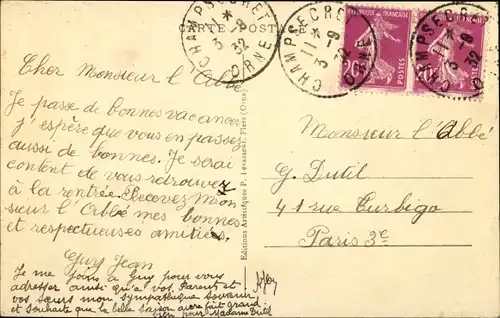 CARTE POSTALE
CHAMPSECRET
11 *
3 -9
32
ORNE
CHAMPSECRET
11 *
3 -9
32
ORNE
CHAMPSECRET
11 *
3 -9
32
ORNE
POSTES
Cher Monsieur l'Abbé
Je passe de bonnes vacances
j'espère que vous en passez
aussi de bonnes. Je serai
content de vous retrouvez
à la rentrée. Recevez Mon
sieur l'Abbé mes bonnes
et respectueuses amitiés.
Guy Jean
Je me joins à Guy pour vous
adresser ainsi qu'à vos Parent et
vos sœurs mon sympathique souvenir
et souhaite que la belle saison aura fait grand
bien pour Madame Dutil
Editions Artistiques P. Levasseur, Flers (Orne)
Monsieur l'Abbé
G. Dutil
41 rue Turbigo
Paris 3e